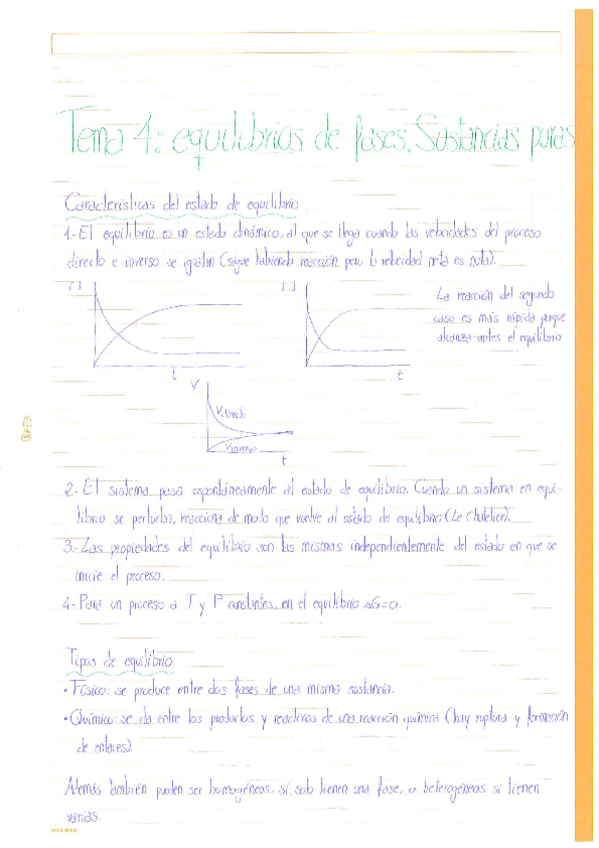 Tema 4: equilibrios de fases. Sustancias puras
Características del estado de equilibrio
1.- El equilibrio es un estado dinámico, al que se llega cuando las velocidades del proceso
directo e inverso se igualan (sigue habiendo reacción pero la velocidad neta es nula).
[ ]
t
[ ]
t
La reacción del segundo
caso es más rápida porque
alcanza antes el equilibrio
V
Vdirecta
Vinversa
t
2.- El sistema pasa espontáneamente al estado de equilibrio. Cuando un sistema en equi-
librio se perturba, reacciona de modo que vuelve al estado de equilibrio (Le Chatelier).
3.- Las propiedades del equilibrio son las mismas independientemente del estado en que se
inicie el proceso.
4.- Para un proceso a T y P constantes, en el equilibrio ΔG=0.
Tipos de equilibrio
• Físico: se produce entre dos fases de una misma sustancia.
• Químico: se da entre los productos y reactivos de una reacción química (hay ruptura y formación
de enlaces).
Además también pueden ser homogéneos, si solo tienen una fase, o heterogéneos si tienen
varias.